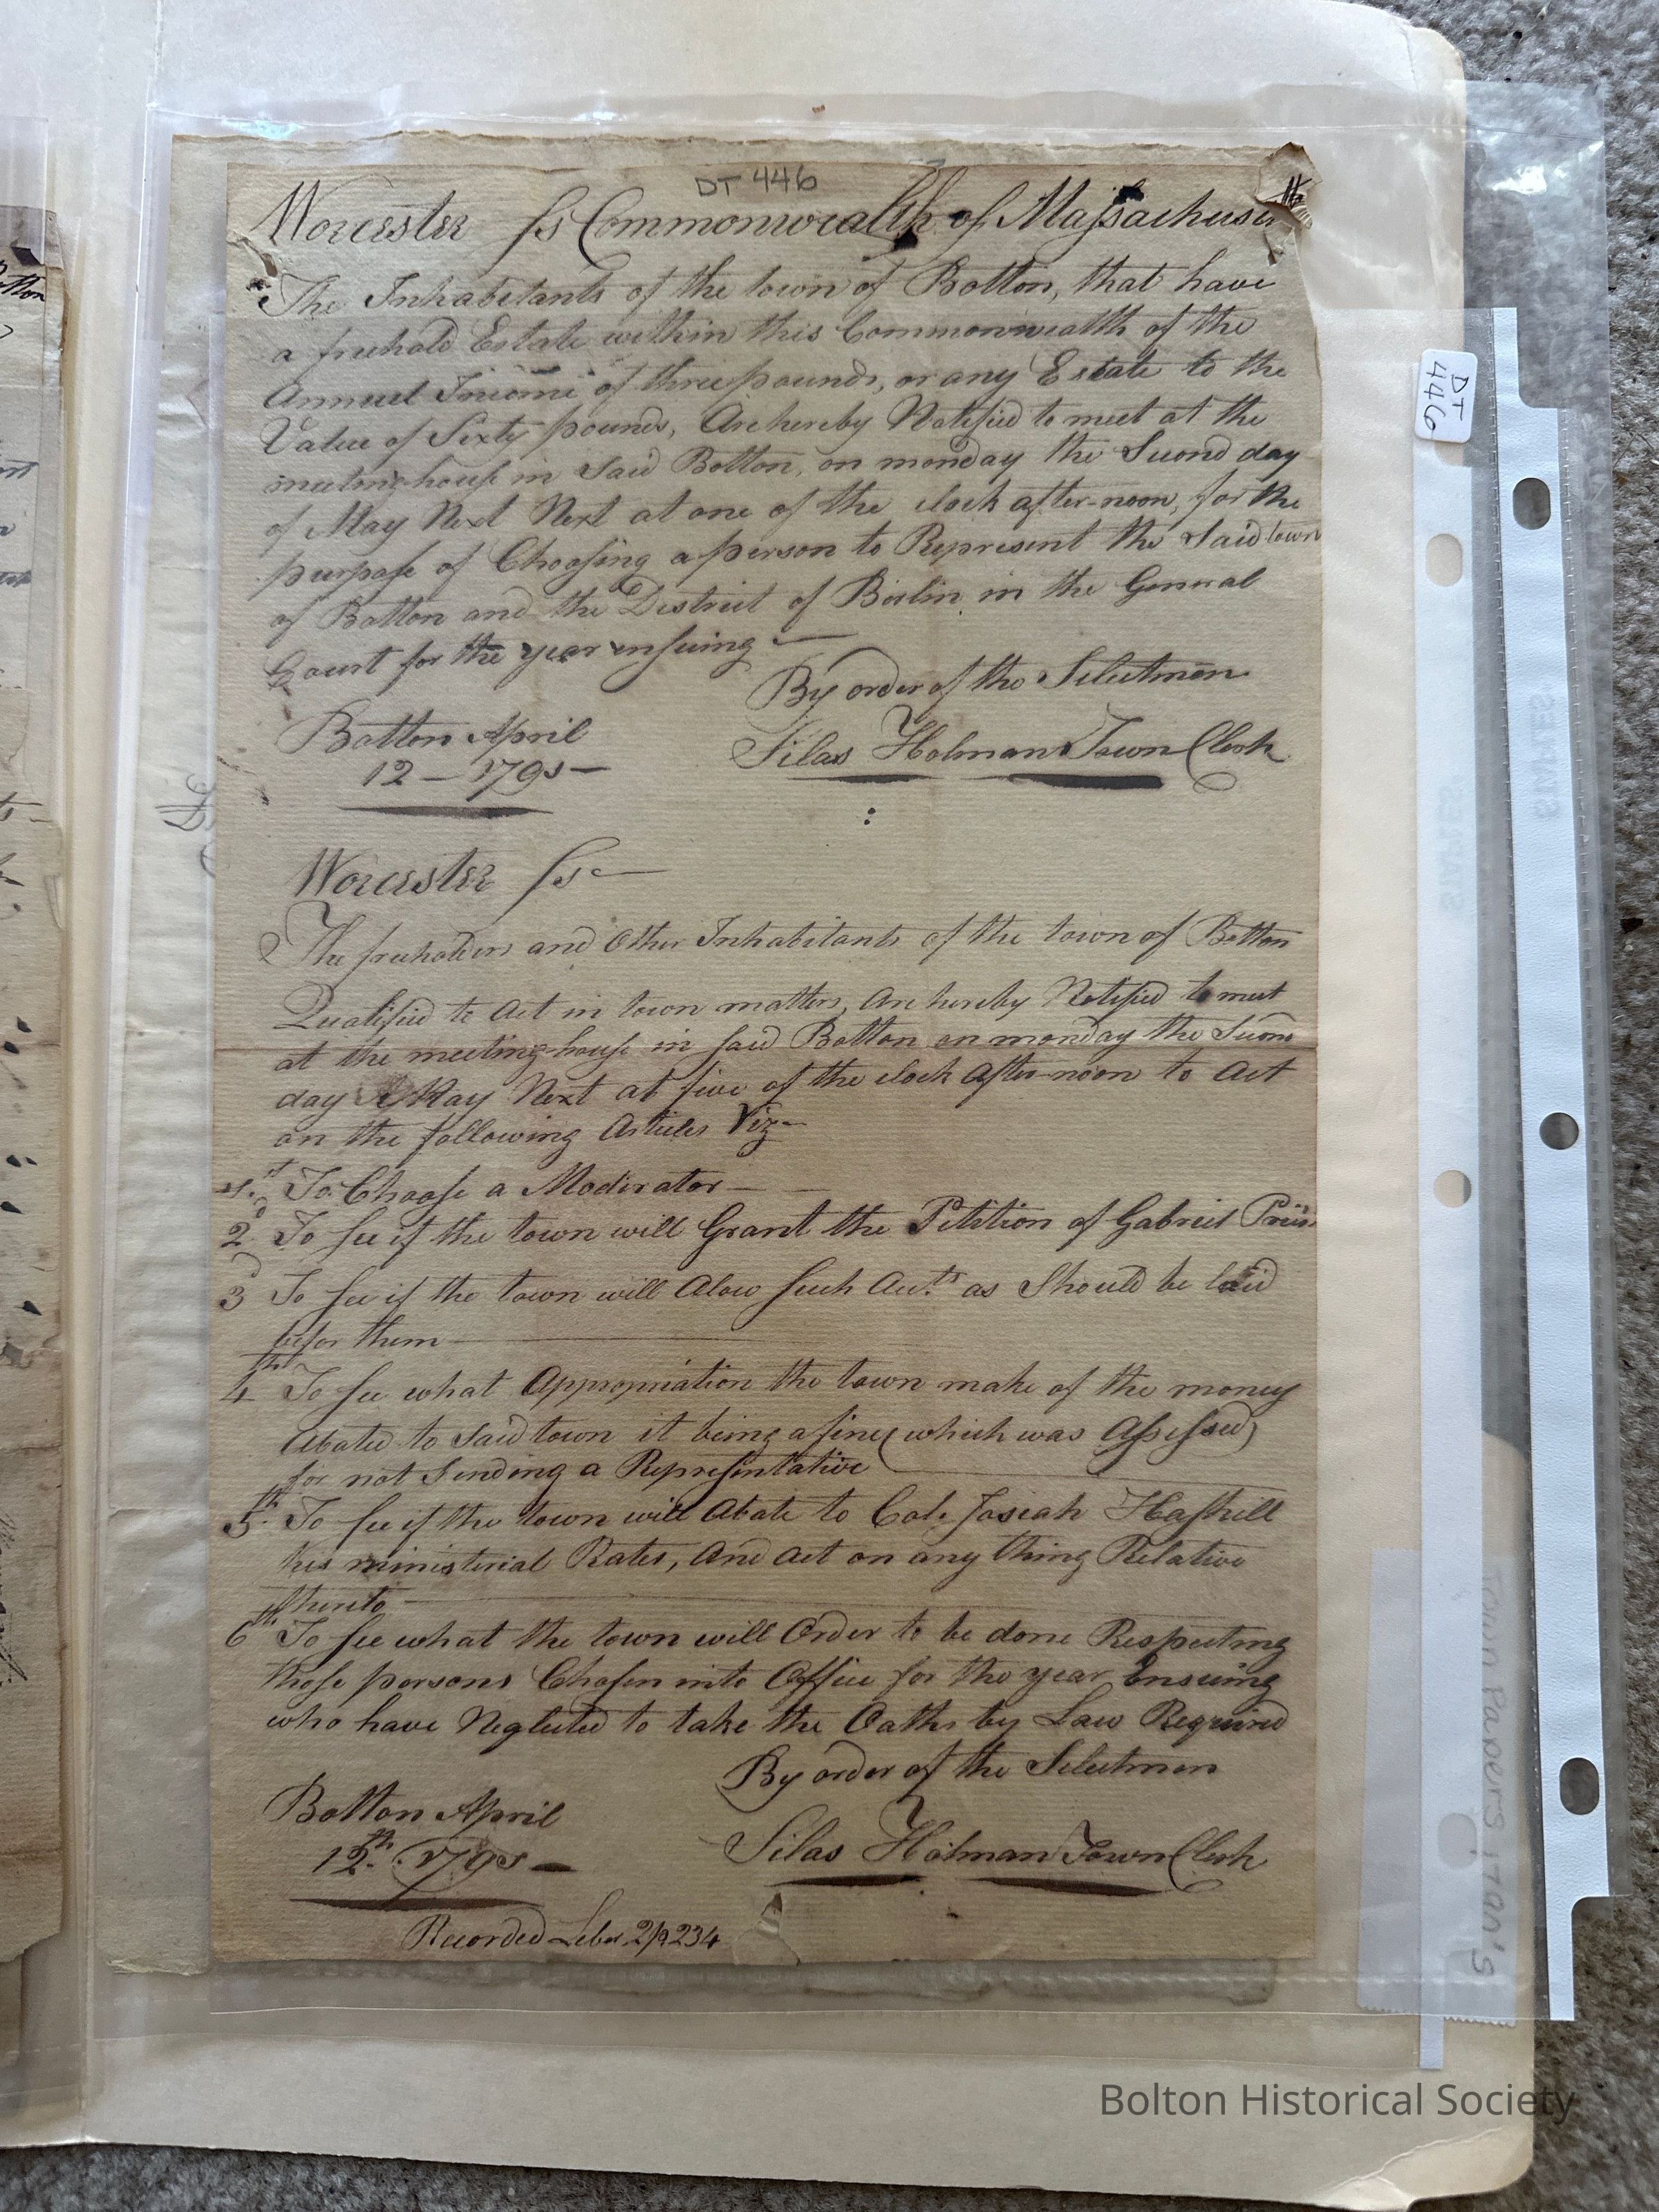 DT 446
Worcester ss Commonwealth of Massachusetts
The Inhabitants of the town of Bolton, that have
a freehold Estate within this Commonwealth of the
Annuel Income of three pounds, or any Estate to the
Value of Sixty pounds, Are hereby Notified to meet at the
meeting-house in said Bolton, on monday the Second day
of May Next Next at one of the clock after-noon, for the
purpose of Choosing a person to Represent the Said town
of Bolton and the District of Berlin in the General
Court for the year ensuing
By order of the Selectmen
Bolton April
12 - 179
Silas Holman Town Clerk
Worcester ss
The freeholders and Other Inhabitants of the town of Bolton
Qualified to Act in town matters, Are hereby Notified to meet
at the meeting-house in said Bolton on monday the Second
day of May Next at five of the clock After-noon to Act
on the following Articles Viz
1st To Choose a Moderator
2d To see if the town will Grant the Petition of Gabriel Priest
3d To see if the town will Alow such Acts as Should be laid
befor them
4th To see what Appropriation the town make of the money
Abated to said town it being a fine (which was Assessed)
for not Sending a Representative
5th To see if the town will Abate to Col. Josiah Haskell
his ministerial Rates, And Act on any thing Relative
thereto
6th To see what the town will Order to be done Respecting
those persons Chosen into Office for the year Ensuing
who have Neglected to take the Oaths by Law Required
By order of the Selectmen
Bolton April
12th 179
Silas Holman Town Clerk
Recorded Leber 2 p 234
DT
446
Town Papers 1790's
Bolton Historical Society